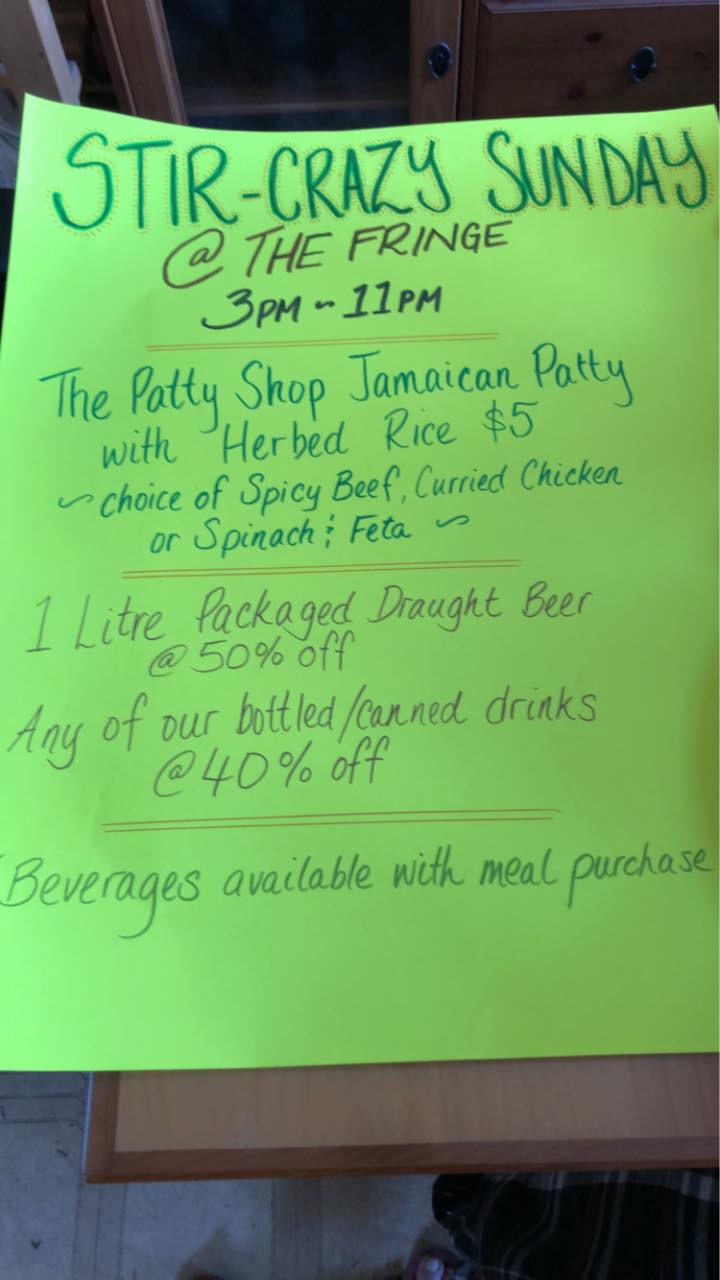 STIR-CRAZY SUNDAY
@ THE FRINGE
3PM ~ 11PM
The Patty Shop Jamaican Patty
with Herbed Rice $5
~ choice of Spicy Beef, Curried Chicken
or Spinach & Feta ~
1 Litre Packaged Draught Beer
@ 50% off
Any of our bottled/canned drinks
@ 40% off
Beverages available with meal purchase